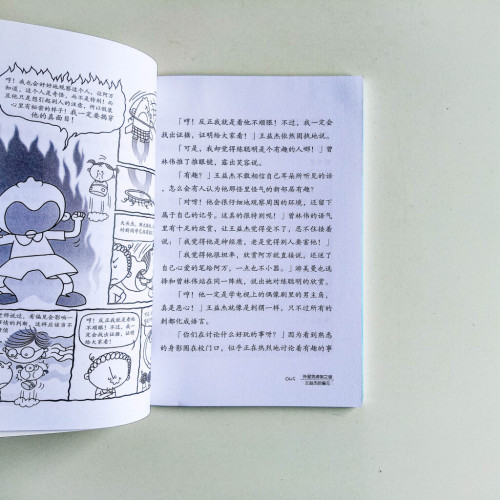 哼！我也会好好地观察这个人，让阿万
知道，这个人是奇怪，而不是特别！而
且他只是想引起别人的注意，所以假装
心里有秘密的样子！我一定要揭穿
他的真面目！
哼！反正我就是看他
不顺眼！不过，我一定
会找出证据，证明
给大家看！
「哼！反正我就是看他不顺眼！不过，我一定会
找出证据，证明给大家看！」王益杰依然固执地说。
「可是，我却觉得练聪明是个有趣的人哪！」曾
林伟推了推眼镜，露出笑容说。
「有趣？」王益杰不敢相信自己耳朵所听见的话
，怎么会有人认为他那怪里怪气的新邻居有趣？
「对呀！他会很仔细地观察周围的环境，还留下
属于自己的记号。这真的很特别呢！」曾林伟的语气
里有十足的欣赏，让王益杰觉得受不了，忍不住接着
说，「我觉得他是神经质，老是觉得别人要害他！」
「我觉得他很坦率，欣赏阿万就直接说，还送了
自己心爱的笔给阿万，一点也不小器。」游美曼也选
择和曾林伟站在同一阵线，说出她对练聪明的欣赏。
「哼！他一定是学电视上的偶像剧里的男主角，
真是恶心！」王益杰就像是刺猬一样，只不过所有的
刺都化成语言。
「你们在讨论什么好玩的事呀？」因为看到熟悉
的身影围在校门口，似乎正在热烈地讨论着有趣的事
王益杰的偏见